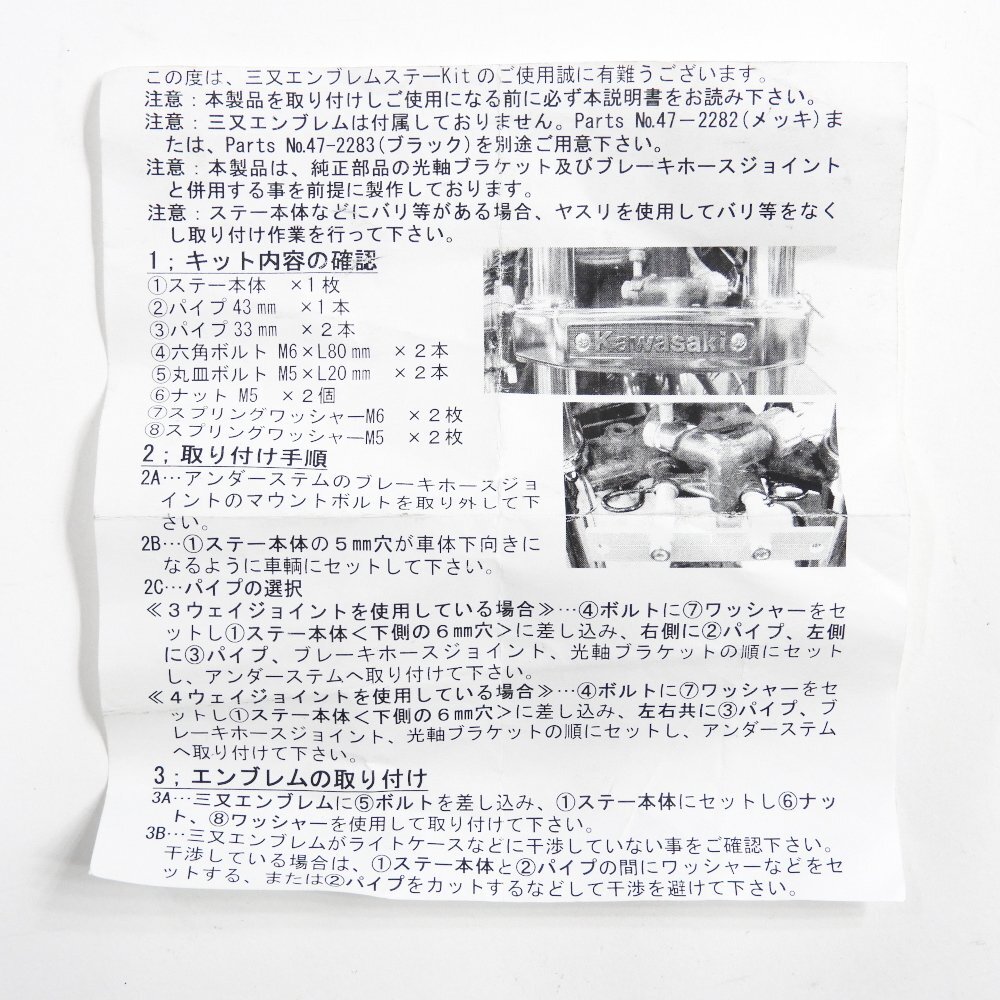 この度は、三又エンブレムステーKitのご使用誠に有難うございます。
注意：本製品を取り付けしご使用になる前に必ず本説明書をお読み下さい。
注意：三又エンブレムは付属しておりません。Parts №47－2282(メッキ)ま
たは、Parts №47-2283(ブラック)を別途ご用意下さい。
注意：本製品は、純正部品の光軸ブラケット及びブレーキホースジョイント
と併用する事を前提に製作しております。
注意：ステー本体などにバリ等がある場合、ヤスリを使用してバリ等をなく
し取り付け作業を行って下さい。
1；キット内容の確認
①ステー本体　×１枚
②パイプ43㎜　×１本
③パイプ33㎜　×２本
④六角ボルト M6×L80㎜　×２本
⑤丸皿ボルト M5×L20㎜　×２本
⑥ナット M5　×２個
⑦スプリングワッシャーM6　×２枚
⑧スプリングワッシャーM5　×２枚
Kawasaki
2；取り付け手順
2A…アンダーステムのブレーキホースジョ
イントのマウントボルトを取り外して下
さい。
2B…①ステー本体の５㎜穴が車体下向きに
なるように車輌にセットして下さい。
2C…パイプの選択
≪３ウェイジョイントを使用している場合≫…④ボルトに⑦ワッシャーをセ
ットし①ステー本体＜下側の６㎜穴＞に差し込み、右側に②パイプ、左側
に③パイプ、ブレーキホースジョイント、光軸ブラケットの順にセット
し、アンダーステムへ取り付けて下さい。
≪４ウェイジョイントを使用している場合≫…④ボルトに⑦ワッシャーをセ
ットし①ステー本体＜下側の６㎜穴＞に差し込み、左右共に③パイプ、ブ
レーキホースジョイント、光軸ブラケットの順にセットし、アンダーステム
へ取り付けて下さい。
3；エンブレムの取り付け
3A…三又エンブレムに⑤ボルトを差し込み、①ステー本体にセットし⑥ナッ
ト、⑧ワッシャーを使用して取り付けて下さい。
3B…三又エンブレムがライトケースなどに干渉していない事をご確認下さい。
干渉している場合は、①ステー本体と②パイプの間にワッシャーなどをセ
ットする、または②パイプをカットするなどして干渉を避けて下さい。